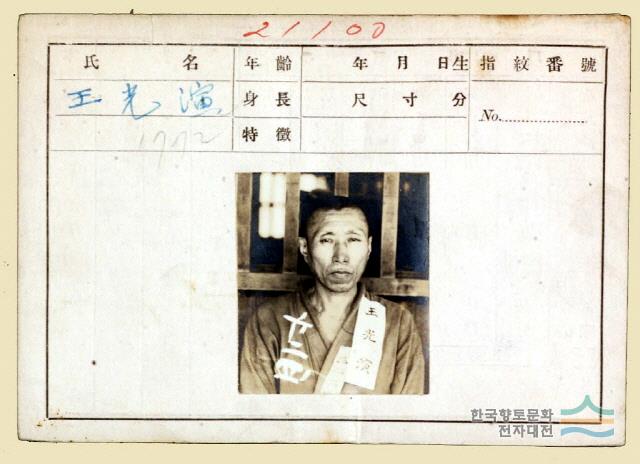 21100
氏 名 年齡 年 月 日生 指紋番號
王光演 身長 尺 寸 分 No.
特徵
1772
王光演
한국향토문화
전자대전